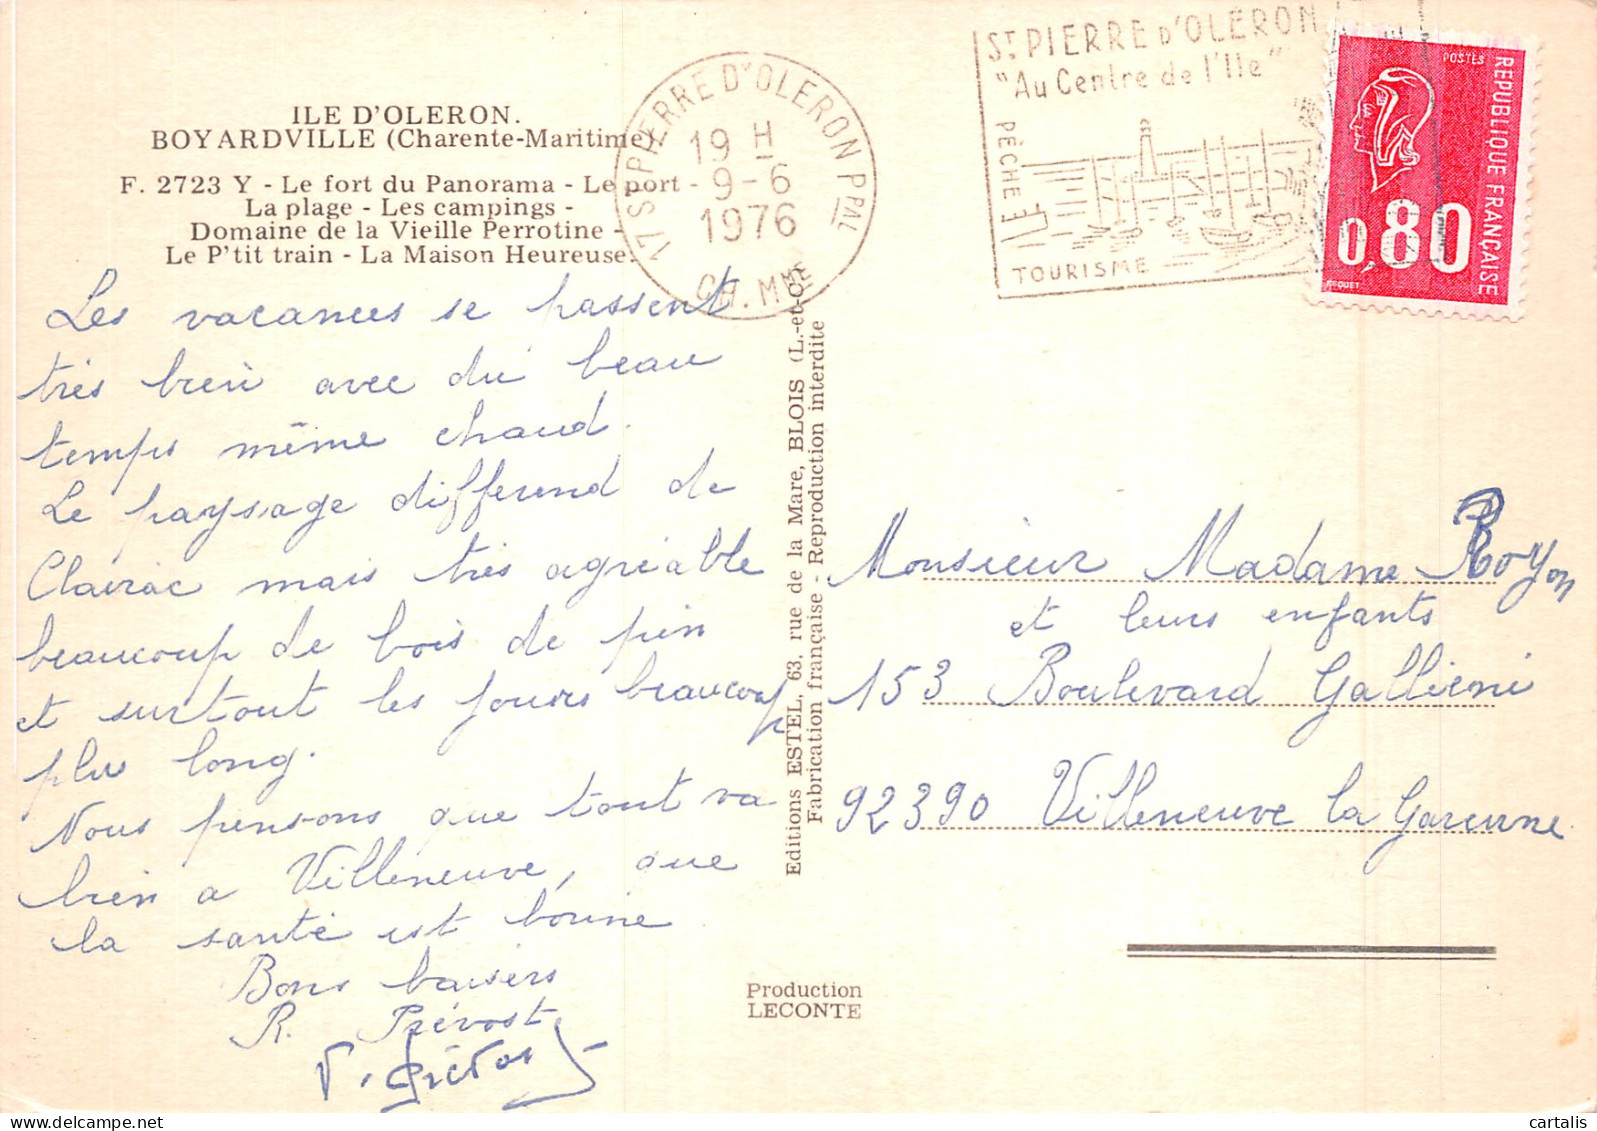 ILE D'OLERON.
BOYARDVILLE (Charente-Maritime)
F. 2723 Y - Le fort du Panorama - Le port -
La plage - Les campings -
Domaine de la Vieille Perrotine -
Le P'tit train - La Maison Heureuse.
17 ST PIERRE D'OLERON PPAL
19 H
9-6
1976
CH. MME
ST PIERRE D'OLÉRON
"Au Centre de l'Ile"
PÊCHE
TOURISME
POSTES
REPUBLIQUE FRANÇAISE
0,80
BEQUET
Les vacances se passent
très bien avec du beau
temps même chaud.
Le paysage differend de
Clairac mais très agréable
beaucoup de bois de pin
et surtout les jours beaucoup
plus long.
Nous pensons que tout va
bien a Villeneuve, que
la santé est bonne
Bons baisers
R. Prévost
V. Prévost
Editions ESTEL, 63, rue de la Mare, BLOIS (L.-et-C.)
Fabrication française - Reproduction interdite
Production
LECONTE
Monsieur Madame Royon
et leurs enfants
153 Boulevard Gallieni
92390 Villeneuve la Garenne
cartalis
www.delcampe.net